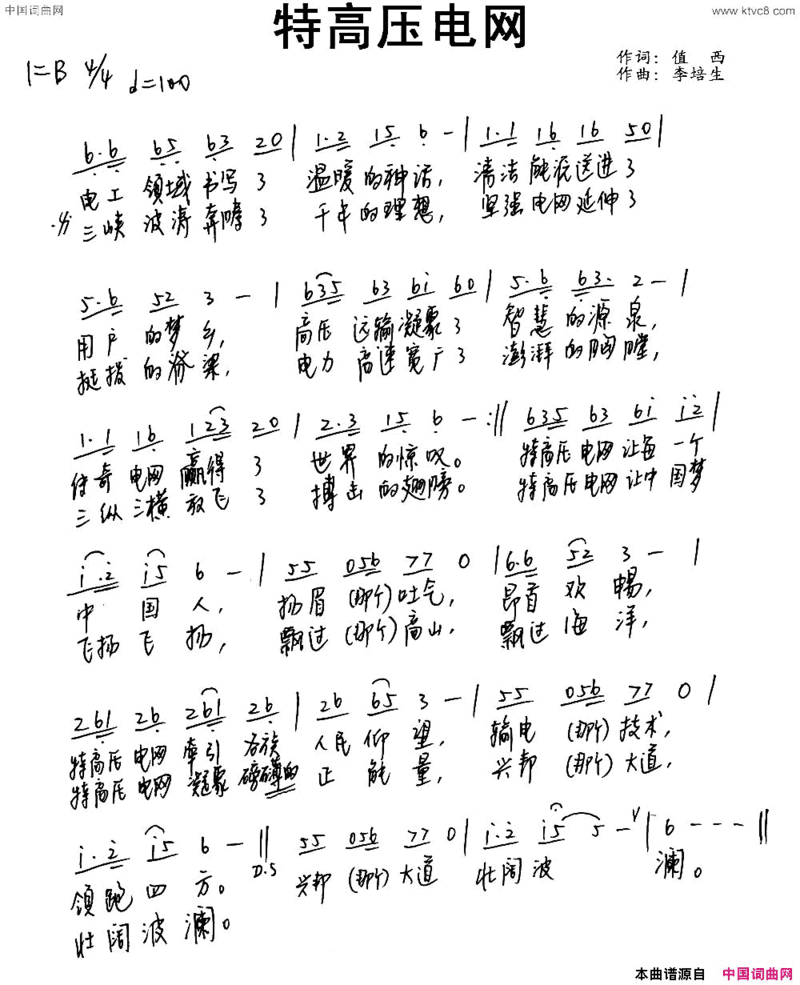 中国词曲网
www.ktvc8.com
特高压电网
作词：值 西
作曲：李培生
1=B 4/4 ♩=100
6·6 65 63 20 | 1·2 15 6 - | 1·1 16 16 50 |
电工 领域 书写了 温暖的神话， 清洁能源送进了
三峡 波涛 奔腾了 千年的理想， 坚强电网延伸了
5·6 52 3 - | 635 63 6i 60 | 5·6 63· 2 - - |
用户 的梦 乡， 高压 远输凝聚了 智慧 的源 泉，
挺拔 的脊 梁， 电力 高速宽广了 澎湃 的胸 膛，
1·1 16 123 20 | 2·3 15 6 - :|| 635 63 6i i2 |
传奇 电网 赢得 了 世界 的惊 叹。 特高压电网让每一个
三纵 三横 放飞 了 搏击 的翅 膀。 特高压电网让中国梦
i·2 i5 6 - | 55 056 77 0 | 6·6 52 3 - |
中 国 人， 扬眉(那个)吐气， 昂首 欢 畅，
飞扬 飞 扬， 飘过(那个)高山， 飘过 海 洋，
261 26 261 26 | 26 65 3 - | 55 056 77 0 |
特高压 电网 牵引 各族 人民 仰 望， 输电 (那个)技术，
特高压 电网 凝聚 磅礴的 正 能 量， 兴邦 (那个)大道，
i·2 i5 6 - || D.S 55 056 77 0 | i·2 i5 5 - V | 6 - - - ||
领跑 四 方。 兴邦 (那个)大道 壮阔 波 澜。
壮阔 波 澜。
本曲谱源自 中国词曲网